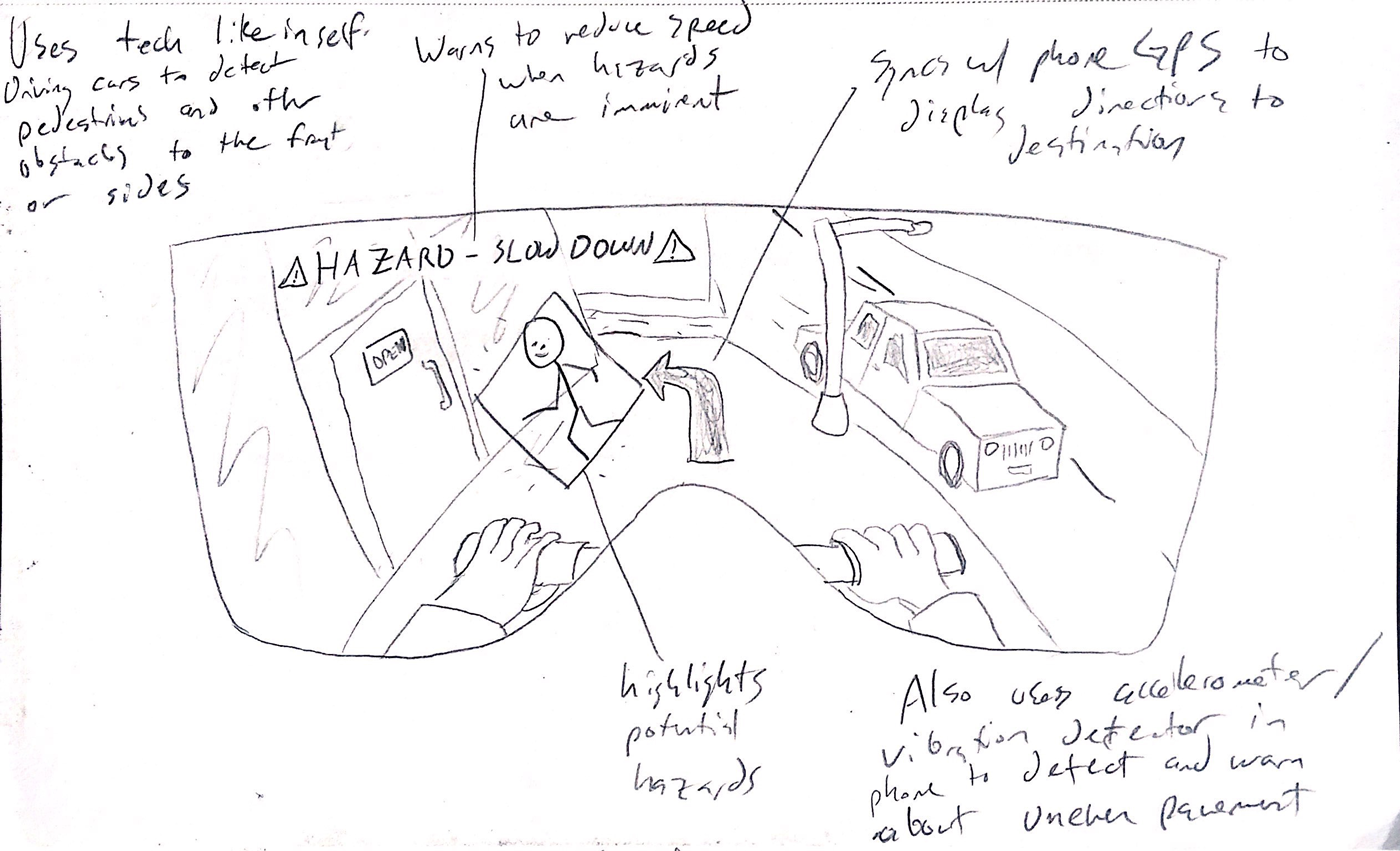 Uses tech like in self-
driving cars to detect
pedestrians and other
obstacles to the front
or sides
Warns to reduce speed
when hazards
are imminent
Syncs w/ phone GPS to
display directions to
destination
⚠ HAZARD - SLOW DOWN ⚠
OPEN
highlights
potential
hazards
Also uses accelerometer/
vibration detector in
phone to detect and warn
about uneven pavement